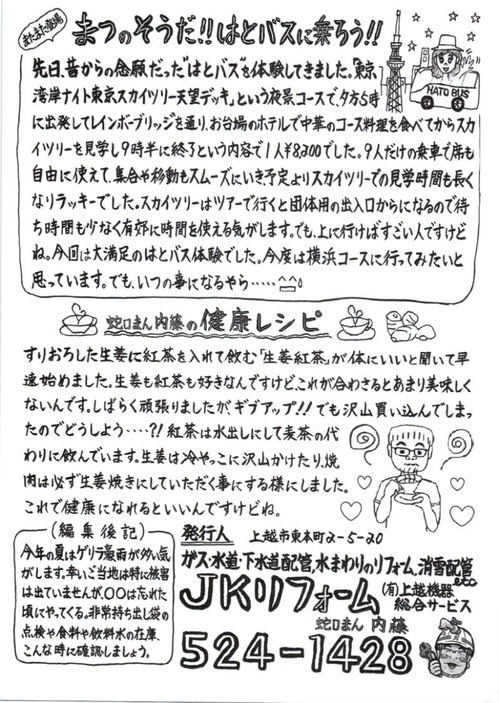 またまた登場
まつのそうだ!!はとバスに乗ろう!!
HATO BUS
先日、昔からの念願だった"はとバス"を体験してきました。「東京
湾岸ナイト東京スカイツリー天望デッキ」という夜景コースで、夕方5時
に出発してレインボーブリッジを通り、お台場のホテルで中華のコース料理を食べてからスカ
イツリーを見学し9時半に終了という内容で1人¥8,300でした。9人だけの乗車で席も
自由に使えて、集合や移動もスムーズにいき、予定よりスカイツリーでの見学時間も長く
なりラッキーでした。スカイツリーはツアーで行くと団体用の出入口からになるので待
ち時間も少なく有効に時間を使える気がします。でも、上に行けばすごい人ですけど
ね。今回は大満足のはとバス体験でした。今度は横浜コースに行ってみたいと
思っています。でも、いつの事になるやら・・・・・
蛇口まん内藤の健康レシピ
すりおろした生姜に紅茶を入れて飲む「生姜紅茶」が体にいいと聞いて早
速始めました。生姜も紅茶も好きなんですけど、これが合わさるとあまり美味しく
ないんです。しばらく頑張りましたが、ギブアップ!!でも沢山買い込んでしまっ
たのでどうしよう・・・・?!紅茶は水出しにして麦茶の代
わりに飲んでいます。生姜は冷やっこに沢山かけたり、焼
肉は必ず生姜焼きにしていただく事にする様にしました。
これで健康になれるといいんですけどね。
(編集後記)
今年の夏はゲリラ豪雨が多い気
がします。幸いご当地は特に被害
は出ていませんが、〇〇は忘れた
頃にやってくる。非常持ち出し袋の
点検や食料や飲料水の在庫、
こんな時に確認しましょう。
発行人 上越市東本町2-5-20
ガス・水道・下水道配管、水まわりのリフォーム、消雪配管
etc
JKリフォーム (有)上越機器
総合サービス
蛇口まん 内藤
524-1428